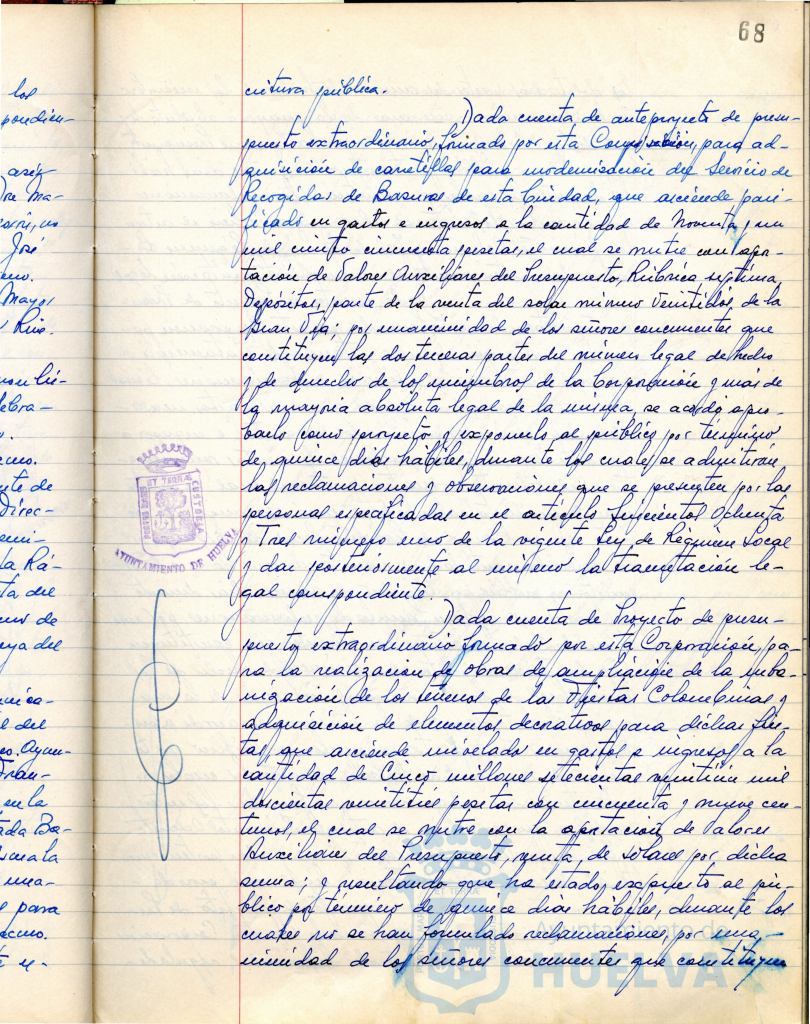 68
los
pondien-
José
Mayor
Rivo.
critura pública.
Dada cuenta de anteproyecto de presu-
puesto extraordinario, formado por esta Corporación, para ad-
quisición de carretillas para modernización del Servicio de
Recogidas de Basuras de esta Ciudad, que asciende pari-
ficado en gastos e ingresos a la cantidad de Noventa y un
mil ciento cincuenta pesetas, el cual se nutre con apor-
tación de Valores Auxiliares del Presupuesto, Rúbrica séptima
Depósitos, parte de la venta del solar número Veintidos, de la
Gran Vía; por unanimidad de los señores concurrentes que
constituyen las dos terceras partes del número legal de hecho
y de derecho de los miembros de la Corporación y más de
la mayoría absoluta legal de la misma, se acordó apro-
barlo como proyecto y exponerlo al público por término
de quince días hábiles, durante los cuales se admitirán
las reclamaciones y observaciones que se presenten por las
personas especificadas en el artículo Seiscientos Ochenta
y Tres número uno de la vigente Ley de Régimen Local
y dar posteriormente al mismo la tramitación le-
gal correspondiente.
Dada cuenta de Proyecto de presu-
puesto extraordinario formado por esta Corporación, pa-
ra la realización de obras de ampliación de la urba-
nización de los terrenos de las Fiestas Colombinas y
adquisición de elementos decorativos para dichas fies-
tas, que asciende nivelado en gastos e ingresos a la
cantidad de Cinco millones setecientas veintiún mil
doscientas veintitrés pesetas con cincuenta y nueve cen-
timos, el cual se nutre con la aportación de Valores
Auxiliares del Presupuesto, venta de solares por dicha
suma; y resultando que ha estado expuesto al pú-
blico por término de quince días hábiles, durante los
cuales no se han formulado reclamaciones, por una-
nimidad de los señores concurrentes que constituyen
AYUNTAMIENTO DE HUELVA
PORTUS MARIS ET TERRAE CUSTODIA
Ayuntamiento de
HUELVA